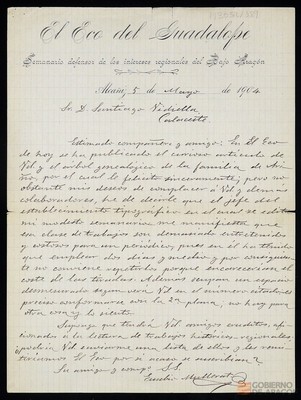 El Eco del Guadalope
Semanario defensor de los intereses regionales del Bajo Aragón
Alcañiz 5 de Mayo de 1904
Sr. D. Santiago Vidiella
Calaceite
Estimado compañero y amigo: En El Eco
de hoy se ha publicado el curioso artículo de
Vd y el árbol genealógico de la familia de
por el cual le felicito sinceramente; pero no
obstante mis deseos de complacer a Vd y demás
colaboradores, he de decirle que el jefe del
establecimiento tipográfico en el cual se edita
mi modesto semanario me manifiesta que
esa clase de trabajos son demasiado entretenidos
y costosos para un periódico, pues en él ha tenido
que emplear dos días y medio y por consiguiente
no conviene repetirlos porque encarecerían el
coste de las tiradas. Además ocupan un espacio
desmesurado según verá Vd en el número
preciso conformarse con la 2ª plana, no hay para
otra cosa y lo siento.
Supongo que tendrá Vd amigos eruditos, afi-
cionados a la lectura de trabajos históricos regionales
podría Vd enviarme una lista de ellos y les remi-
tiríamos El Eco por si acaso se suscribían?
Su amigo y comp. S.S.
GOBIERNO
DE ARAGON